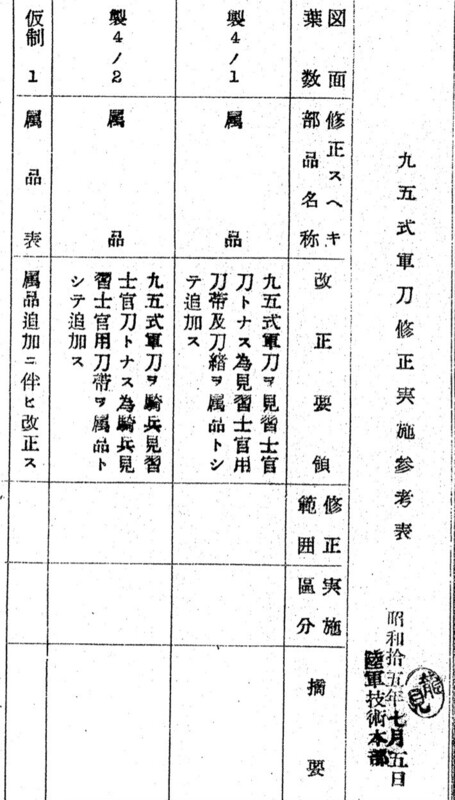 九五式軍刀修正実施参考表
昭和拾五年七月五日
陸軍技術本部
龍見
図面葉数
修正スヘキ部品名称
改正要領
修正範囲
実施區分
摘要
製4/1
属品
九五式軍刀ヲ見習士官
刀トナス為見習士官用
刀帯及刀緒ヲ属品トシ
テ追加ス
製4/2
属品
九五式軍刀ヲ騎兵見習
士官刀トナス為騎兵見
習士官用刀帯ヲ属品ト
シテ追加ス
仮制1
属品表
属品追加ニ伴ヒ改正ス